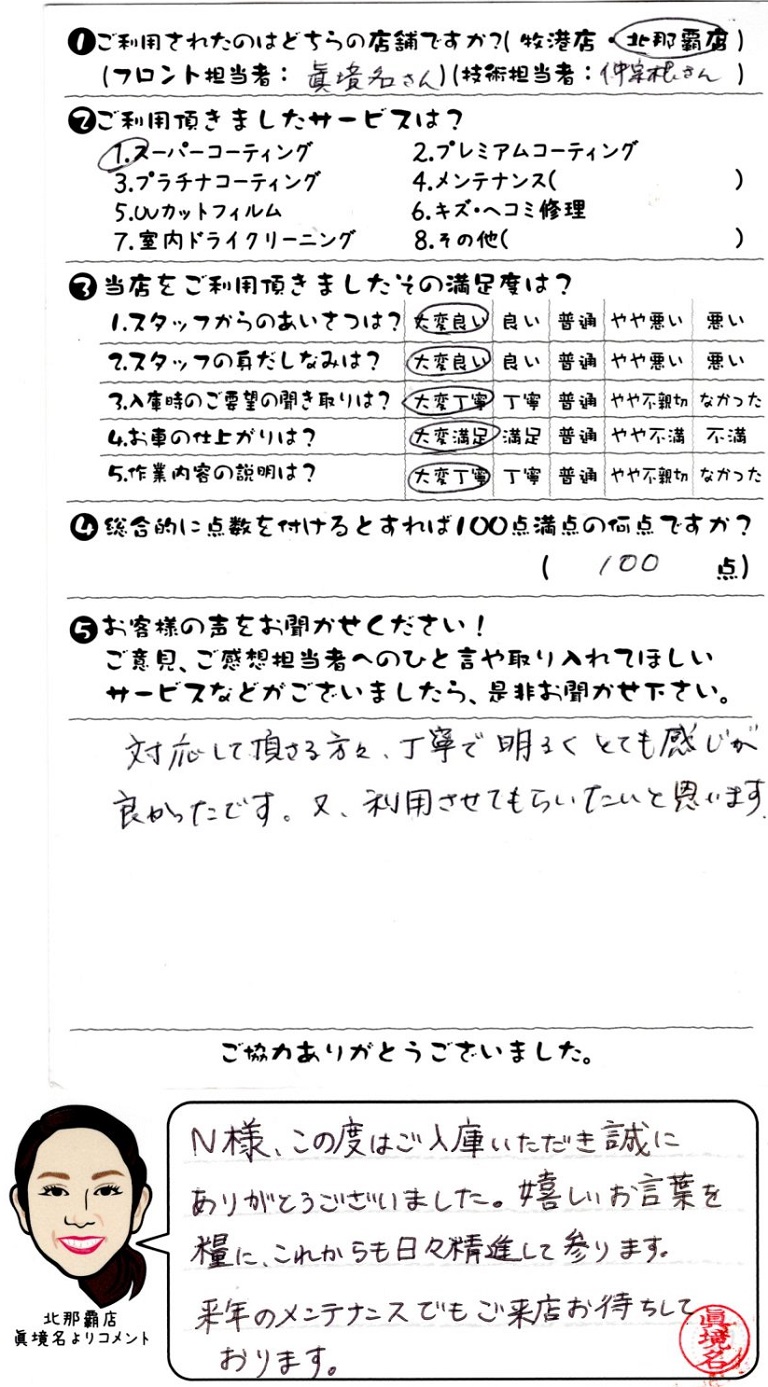 ❶ご利用されたのはどちらの店舗ですか?(牧港店・北那覇店)
(フロント担当者: 眞境名さん)(技術担当者:仲宗根さん )
❷ご利用頂きましたサービスは?
1.スーパーコーティング 2.プレミアムコーティング
3.プラチナコーティング 4.メンテナンス( )
5.UVカットフィルム 6.キズ・ヘコミ修理
7.室内ドライクリーニング 8.その他( )
❸当店をご利用頂きましたその満足度は?
1.スタッフからのあいさつは? 大変良い 良い 普通 やや悪い 悪い
2.スタッフの身だしなみは? 大変良い 良い 普通 やや悪い 悪い
3.入庫時のご要望の聞き取りは? 大変丁寧 丁寧 普通 やや不親切 なかった
4.お車の仕上がりは? 大変満足 満足 普通 やや不満 不満
5.作業内容の説明は? 大変丁寧 丁寧 普通 やや不親切 なかった
❹総合的に点数を付けるとすれば100点満点の何点ですか?
( 100 点)
❺お客様の声をお聞かせください!
ご意見、ご感想担当者へのひと言や取り入れてほしい
サービスなどがございましたら、是非お聞かせ下さい。
対応して頂さる方々、丁寧で明るくとても感じが
良かったです。又、利用させてもらいたいと思います.
ご協力ありがとうございました。
N様、この度はご入庫いただき誠に
ありがとうございました。嬉しいお言葉を
糧に、これからも日々精進して参ります。
来年のメンテナンスでもご来店お待ちして
おります。
眞境名
北那覇店
眞境名よりコメント